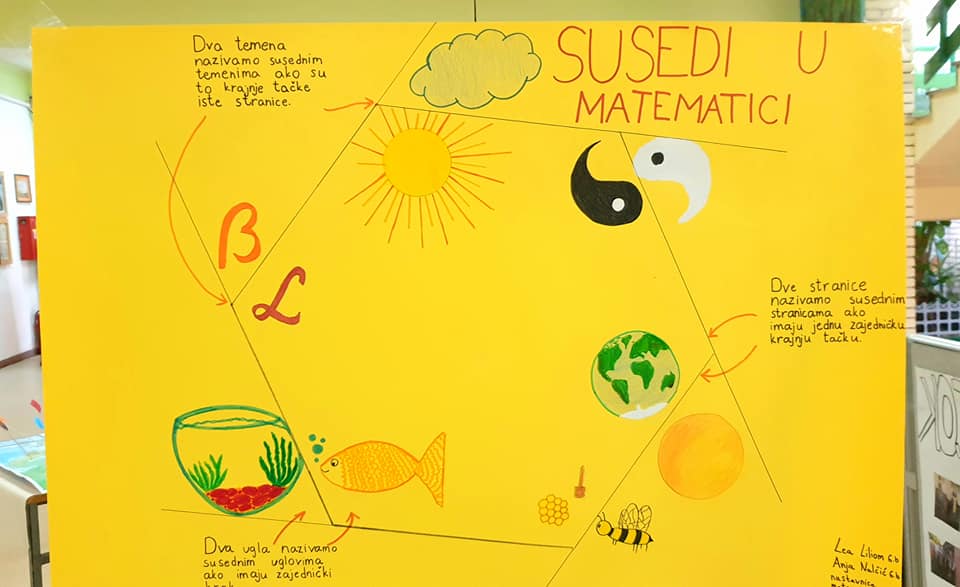 SUSEDI U
MATEMATICI
Dva temena
nazivamo susednim
temenima ako su
to krajnje tačke
iste stranice.
β
L
Dve stranice
nazivamo susednim
stranicama ako
imaju jednu zajedničku
krajnju tačku.
Dva ugla nazivamo
susednim uglovima
ako imaju zajednički
Lea Liliom 6.b
Anja
nastavnica